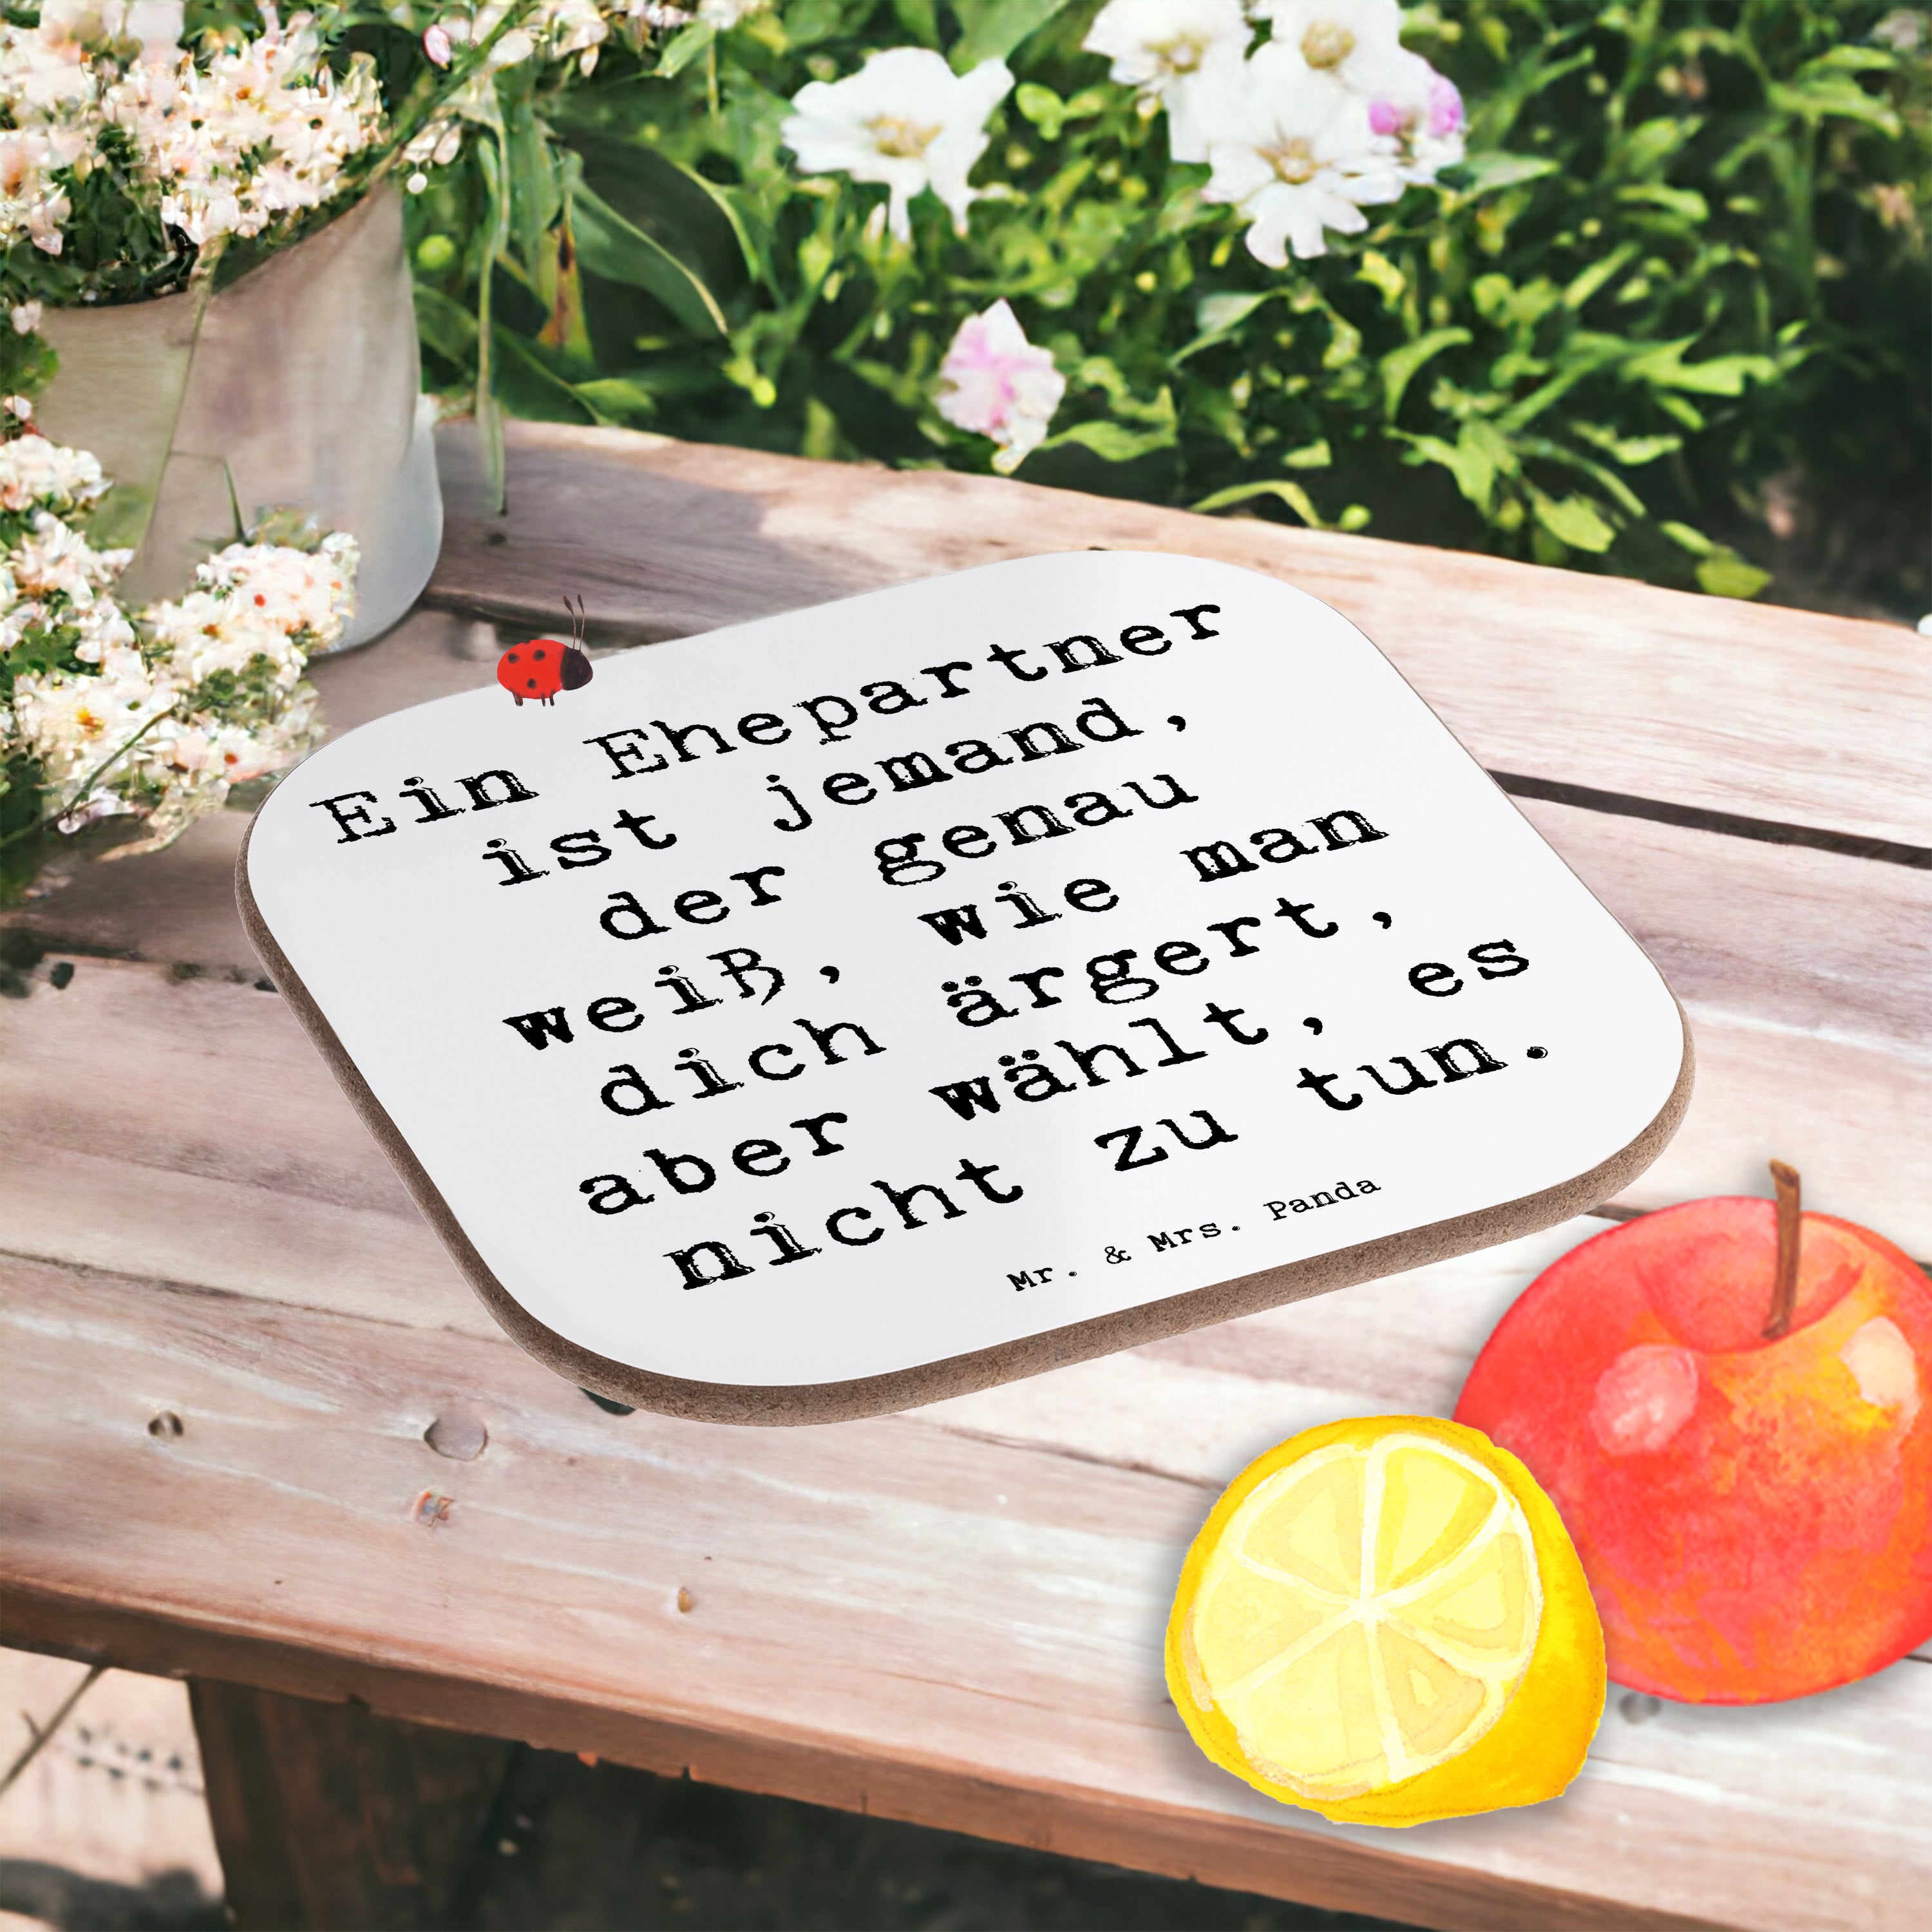 Ein Ehepartner
ist jemand,
der genau
weiß, wie man
dich ärgert,
aber wählt, es
nicht zu tun.
Mr. & Mrs. Panda